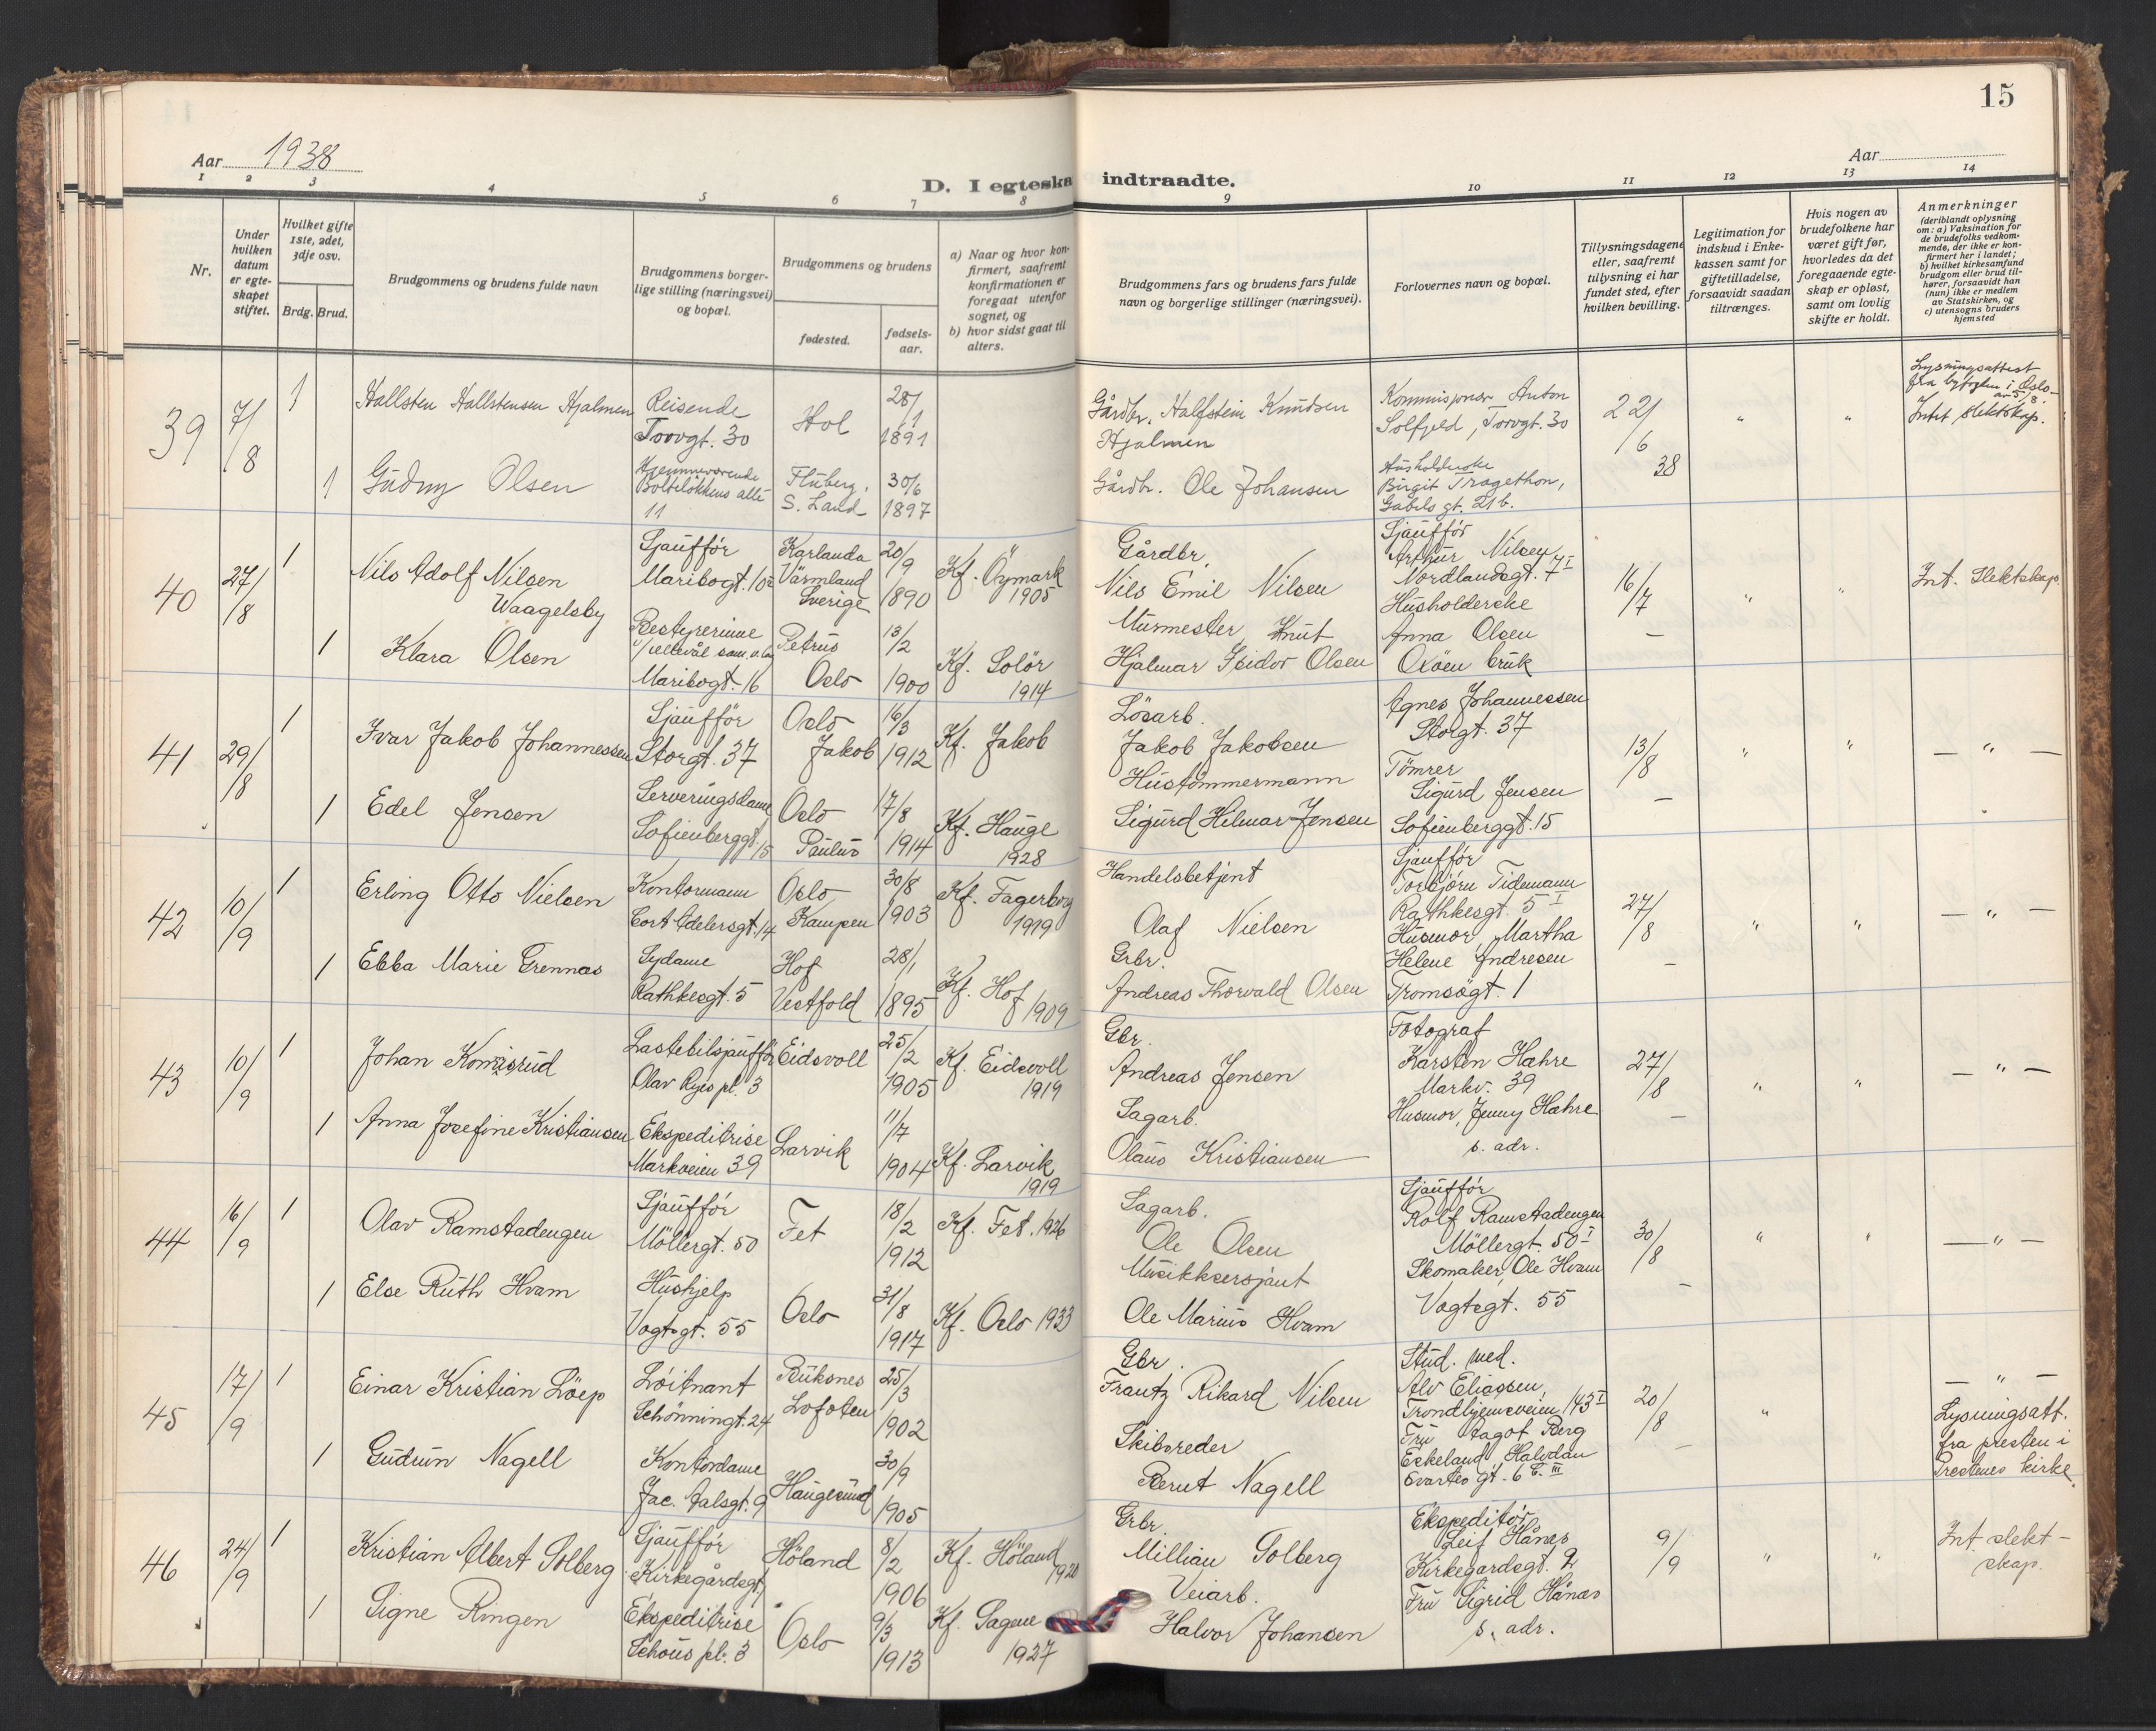 15
Aar 1938
Aar
D. I egteska
indtraadte.
1 2 3 4 5 6 7 8 9 10 11 12 13 14
Nr.
Under hvilken datum er egteskapet stiftet.
Hvilket gifte 1ste, 2det, 3dje osv.
Brdg. Brud.
Brudgommens og brudens fulde navn
Brudgommens borgerlige stilling (næringsvei) og bopæl.
Brudgommens og brudens
fødested.
fødselsaar.
a) Naar og hvor konfirmert, saafremt konfirmationen er foregaat utenfor sognet, og
b) hvor sidst gaat til alters.
Brudgommens fars og brudens fars fulde navn og borgerlige stillinger (næringsvei).
Forlovernes navn og bopæl.
Tillysningsdagene eller, saafremt tillysning ei har fundet sted, efter hvilken bevilling.
Legitimation for indskud i Enkekassen samt for giftetilladelse, forsaavidt saadan tiltrænges.
Hvis nogen av brudefolkene har været gift før, hvorledes da det foregaaende egteskap er opløst, samt om lovlig skifte er holdt.
Anmerkninger
(deriblandt oplysning om: a) Vaksination for de brudefolks vedkommende, der ikke er konfirmert her i landet; b) hvilket kirkesamfund brudgom eller brud tilhører, forsaavidt han (hun) ikke er medlem av Statskirken, og c) utensogns bruders hjemsted
39 7/8 1 Hallsten Hallstensen Hjalmen
Reisende Torvgt. 30
Hol 28/1 1891
Gårdbr. Halfstein Knudsen Hjalmen
Kommisjonær Anton Solfjeld, Torvgt. 30
22/6 38 " "
Lysningsattest fra byfogden i Oslo av 5/8. Intet slektskap.
1 Gudny Olsen
Hjemmeværende Bolteløkkens allé 11
Fluberg, S. Land 30/6 1897
Gårdbr. Ole Johansen
Husholderske Birgit Tragethon, Gabels gt. 21 b.
40 27/8 1 Nils Adolf Nilsen Waagelsby
Sjauffør Maribogt. 10
Karlanda Värmland Sverige 20/9 1890
Kf. Öymark 1905
Gårdbr. Nils Emil Nilsen
Sjauffør Arthur Nilsen Nordlandsgt. 7 I
16/7 " "
Int. Slektskap
1 Klara Olsen
Bestyrerinne
Maribogt. 16
Petrus Oslo 13/2 1900
Kf. Solör 1914
Murmester Knut Hjalmar Isidor Olsen
Husholderske Anna Olsen Oxöen bruk
41 29/8 1 Ivar Jakob Johannessen
Sjauffør Storgt. 37
Oslo Jakob 16/3 1912
Kf. Jakob
Lösarb. Jakob Jakobsen
Agnes Johannessen Storgt. 37
13/8 " " — " —
1 Edel Jensen
Serveringsdame Sofienberggt. 15
Oslo Paulus 17/8 1914
Kf. Hauge 1928
Hustömmermann Sigurd Hilmar Jensen
Tömrer Sigurd Jensen Sofienberggt. 15
42 10/9 1 Erling Otto Nielsen
Kontormann Cort Adelersgt. 14
Oslo Kampen 30/8 1903
Kf. Fagerborg 1919
Handelsbetjent Olaf Nielsen
Sjauffør Torbjörn Tidemann Rathkesgt. 5 I
27/8 " " — " —
1 Ebba Marie Grennæs
Sydame Rathkesgt. 5
Hof Vestfold 28/1 1895
Kf. Hof 1909
Grbr. Andreas Thorvald Olsen
Husmor, Martha Helene Andresen Tromsögt. 1
43 10/9 1 Johan Komisrud
Lastebilsjauffør Olav Ryes pl. 3
Eidsvoll 25/2 1905
Kf. Eidsvoll 1919
Gbr. Andreas Jensen
Fotograf Karsten Hæhre Markv. 39
27/8 " " — " —
1 Anna Josefine Kristiansen
Ekspeditrise Markveien 39
Larvik 11/7 1904
Kf. Larvik 1919
Sagarb. Olaus Kristiansen
Husmor, Jenny Hæhre s. adr.
44 16/9 1 Olav Ramstadengen
Sjauffør Möllergt. 50
Fet 18/2 1912
Kf. Fet. 1926
Sagarb. Ole Olsen
Sjauffør Rolf Ramstadengen Möllergt. 50 I
30/8 " " — " —
1 Else Ruth Hvam
Hushjelp Vogtsgt. 55
Oslo 31/8 1917
Kf. Oslo 1933
Musikksersjant Ole Marius Hvam
Skomaker, Ole Hvam Vogtsgt. 55
45 17/9 1 Einar Kristian Löep
Löitnant Schönningt. 24
Buksnes Lofoten 25/3 1902
Gbr. Frantz Rikard Nilsen
Stud. med. Alv Eliassen, Trondhjemsveien 143 I
20/8 " — " —
Lysningsatt. fra presten i Prestenes kirke.
1 Gudrun Nagell
Kontordame Jac. Aalsgt. 9
Haugesund 30/9 1905
Skibsreder Bernt Nagell
Fru Aagot Berg Eskeland, Halvdan Svartes gt. 6 b. III
46 24/9 1 Kristian Albert Solberg
Sjauffør Kirkegårdsgt.
Höland 8/2 1906
Kf. Höland 1920
Grbr. Millian Solberg
Ekspeditör Leif Hånes Kirkegardsgt. 2
9/9 " "
Int slektskap.
1 Signe Ringen
Ekspeditrise Schous pl. 3
Oslo 9/3 1913
Kf. Sagene 1927
Veiarb. Halvor Johansen
Fru Sigrid Hånes s. adr.